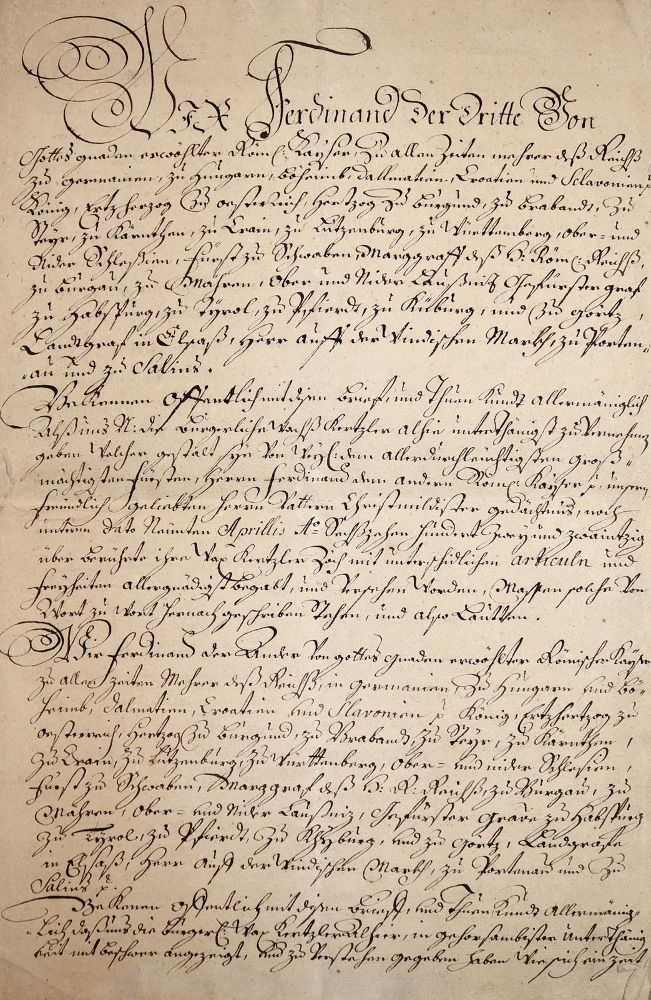 Wir Ferdinand der Dritte Von
Gottes gnaden erwöhlter Röm: Kayser, Zu allen Zeiten mehrer deß Reichß
zu Germanien, zu Hungarn, Böheimb, Dalmatien, Croatien und Sclavonien p
König, Ertzherzog Zu Oesterreich, Hertzog Zu Burgund, zu Brabandt, Zu
Steyr, zu Kärnthen, zu Crain, zu Lützenburg, zu Württemberg, Ober- und
Nider Schleßien, Fürst zu Schwaben, Marggraff deß H: Röm: Reichß,
zu Burgau, zu Mähren, Ober und Nider Laußnitz, Gefürster graf
zu Habspurg, zu Tyrol, zu Pfierdt, zu Kÿburg, und Zu Görtz,
Landtgraf in Elsaß, Herr auff der Windischen Markh, zu Porten-
au und zu Salins.
Bekennen Offentlich mit disem brieff, und Thuen Kundt allermäniglich
Alß uns N: die Burgerliche Wachß Kertzler alhie unterthänigst zu Vernehmen
geben Welcher gestalt sye Von Weyl: dem allerdurchleichtigsten Groß-
mächtigsten Fürsten, Herrn Ferdinand dem andern Röm: Kayser p. unsern
freundlich geliebten Herrn Vattern Christmildister gedächtnus, noch
unterm dato Neunten Aprillis Ao. Sechßzehen hundert Zwey und Zwaintzig
über berührte ihre Wax Kertzler Zöch mit unterschidlichen Articuln und
Freyheiten allergnädigist begabt, und Versehen Worden, Massen solche Von
Wort zu Wort hernach geschriben Stehen, und also Lautten.
Wir Ferdinand der Ander Von gottes gnaden erwöhlter Römischer Kayser
zu allen zeiten Mehrer deß Reichß, in Germanien, Zu Hungarn und Bö-
heimb, Dalmatien, Croatien und Slavonien p König, Ertzhertzog zu
Oesterreich, Hertzog Zu Burgund, zu Brabandt, Zu Steyr, Zu Kärnthen,
Zu Crain, Zu Lützenburg, Zu Württemberg, Ober- und nider Schlesien,
Fürst zu Schwaben, Marggraf deß H: R: Reichß, zu Burgau, zu
Mähren, Ober- und Nider Laußniz, Gefürster Grave zu Habspurg
Zu Tyrol, zu Pfierdt, Zu Khyburg, und zu Goertz, Landgrafe
in Elsaß, Herr auff der Windischen Markh, zu Portenau und Zu
Salins p.
Bekenen offentlich mit disem brieff, und Thuen Kundt Allermänig-
lich daß uns die Burgerl: Wax Kertzler alhier, in gehorsambister Unterthänig
keit mit beschwer angezeigt, und zu Verstehen gegeben haben Wie sich ein Zeit